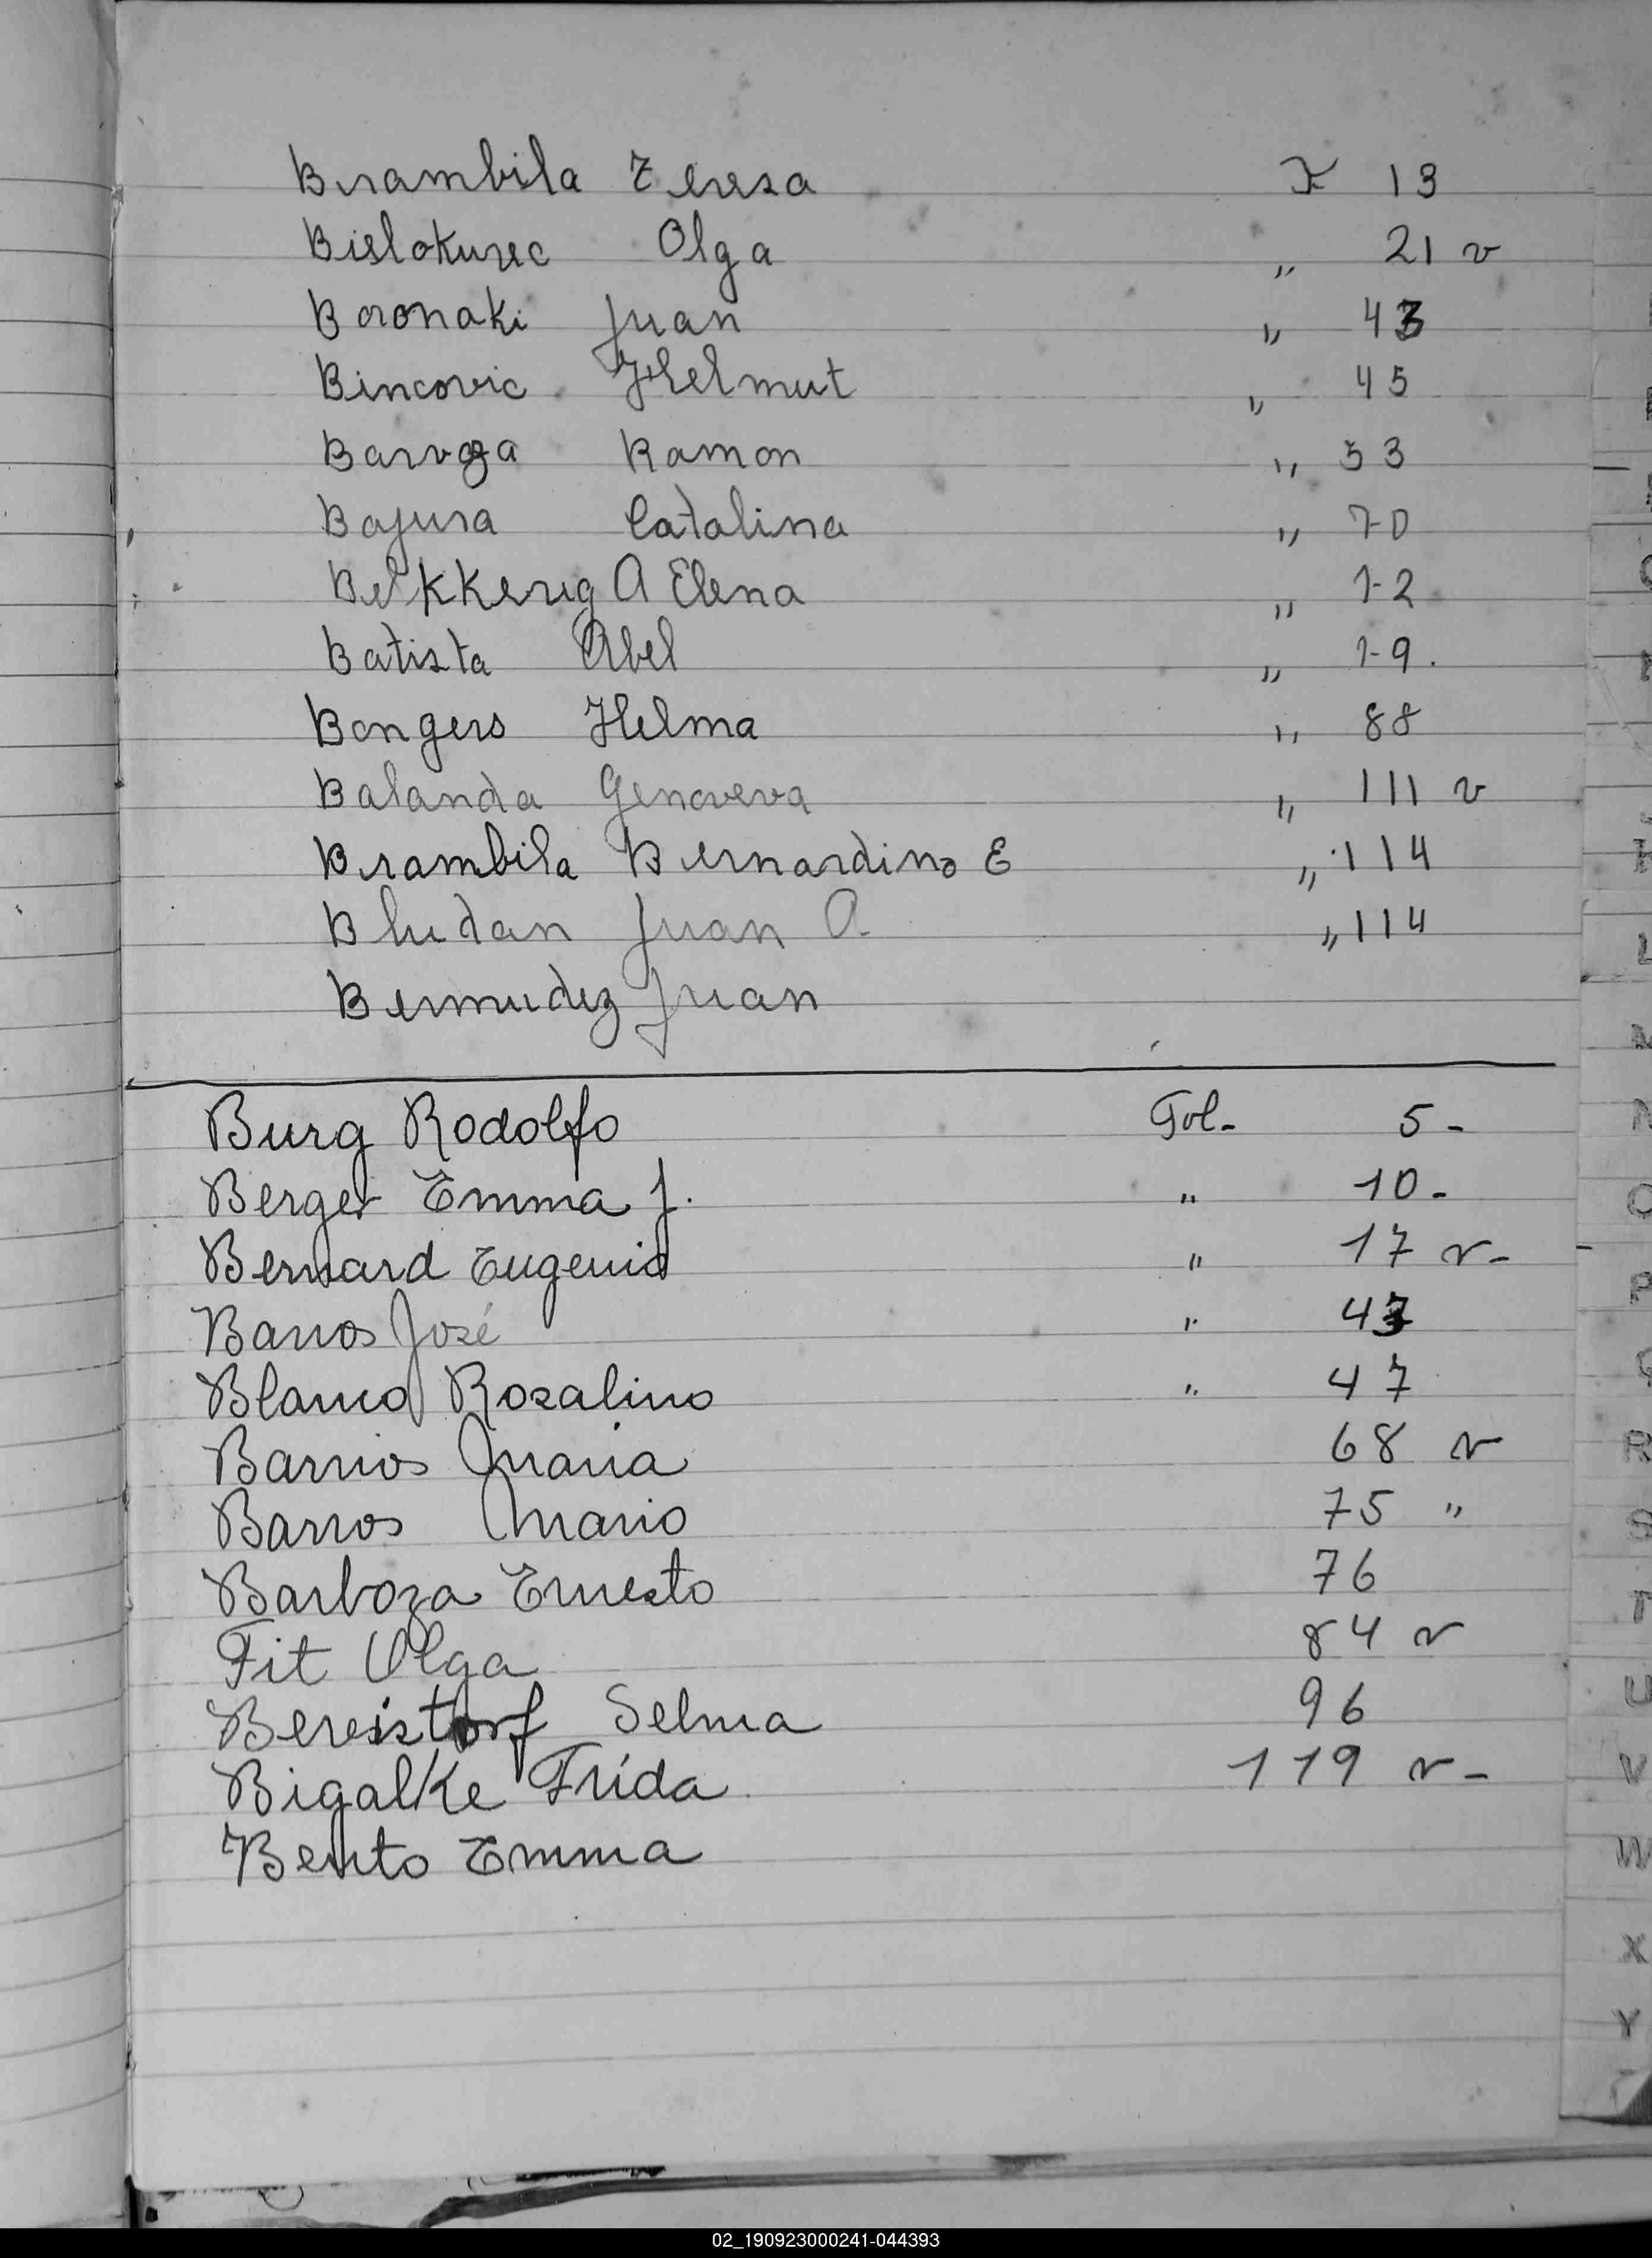 Brambila Teresa F 13
Bielokurec Olga " 21 v
Boronaki Juan " 43
Bincovic Helmut " 45
Ramon " 53
Bajura Catalina " 70
Belkkerig A Elena " 72
Batista Abel " 79.
Bongers Helma " 88
Balanda Genoveva " 111 v
Brambila Bernardino E " 114
Bludan Juan A. " 114
Bermudez Juan
Burg Rodolfo Fol- 5-
Berger Emma J. " 10-
Bernard Eugenio " 17 v-
Barros José " 43
Blanco Rosalino " 47
Barrios Maria 68 v
Barros Mario 75 "
Barboza Ernesto 76
Fit Olga 84 v
Bereistorf Selma 96
Bigalke Frida 119 v-
Bento Emma
K
L
M
N
O
P
Q
R
S
T
U
V
W
X
Y
02_190923000241-044393